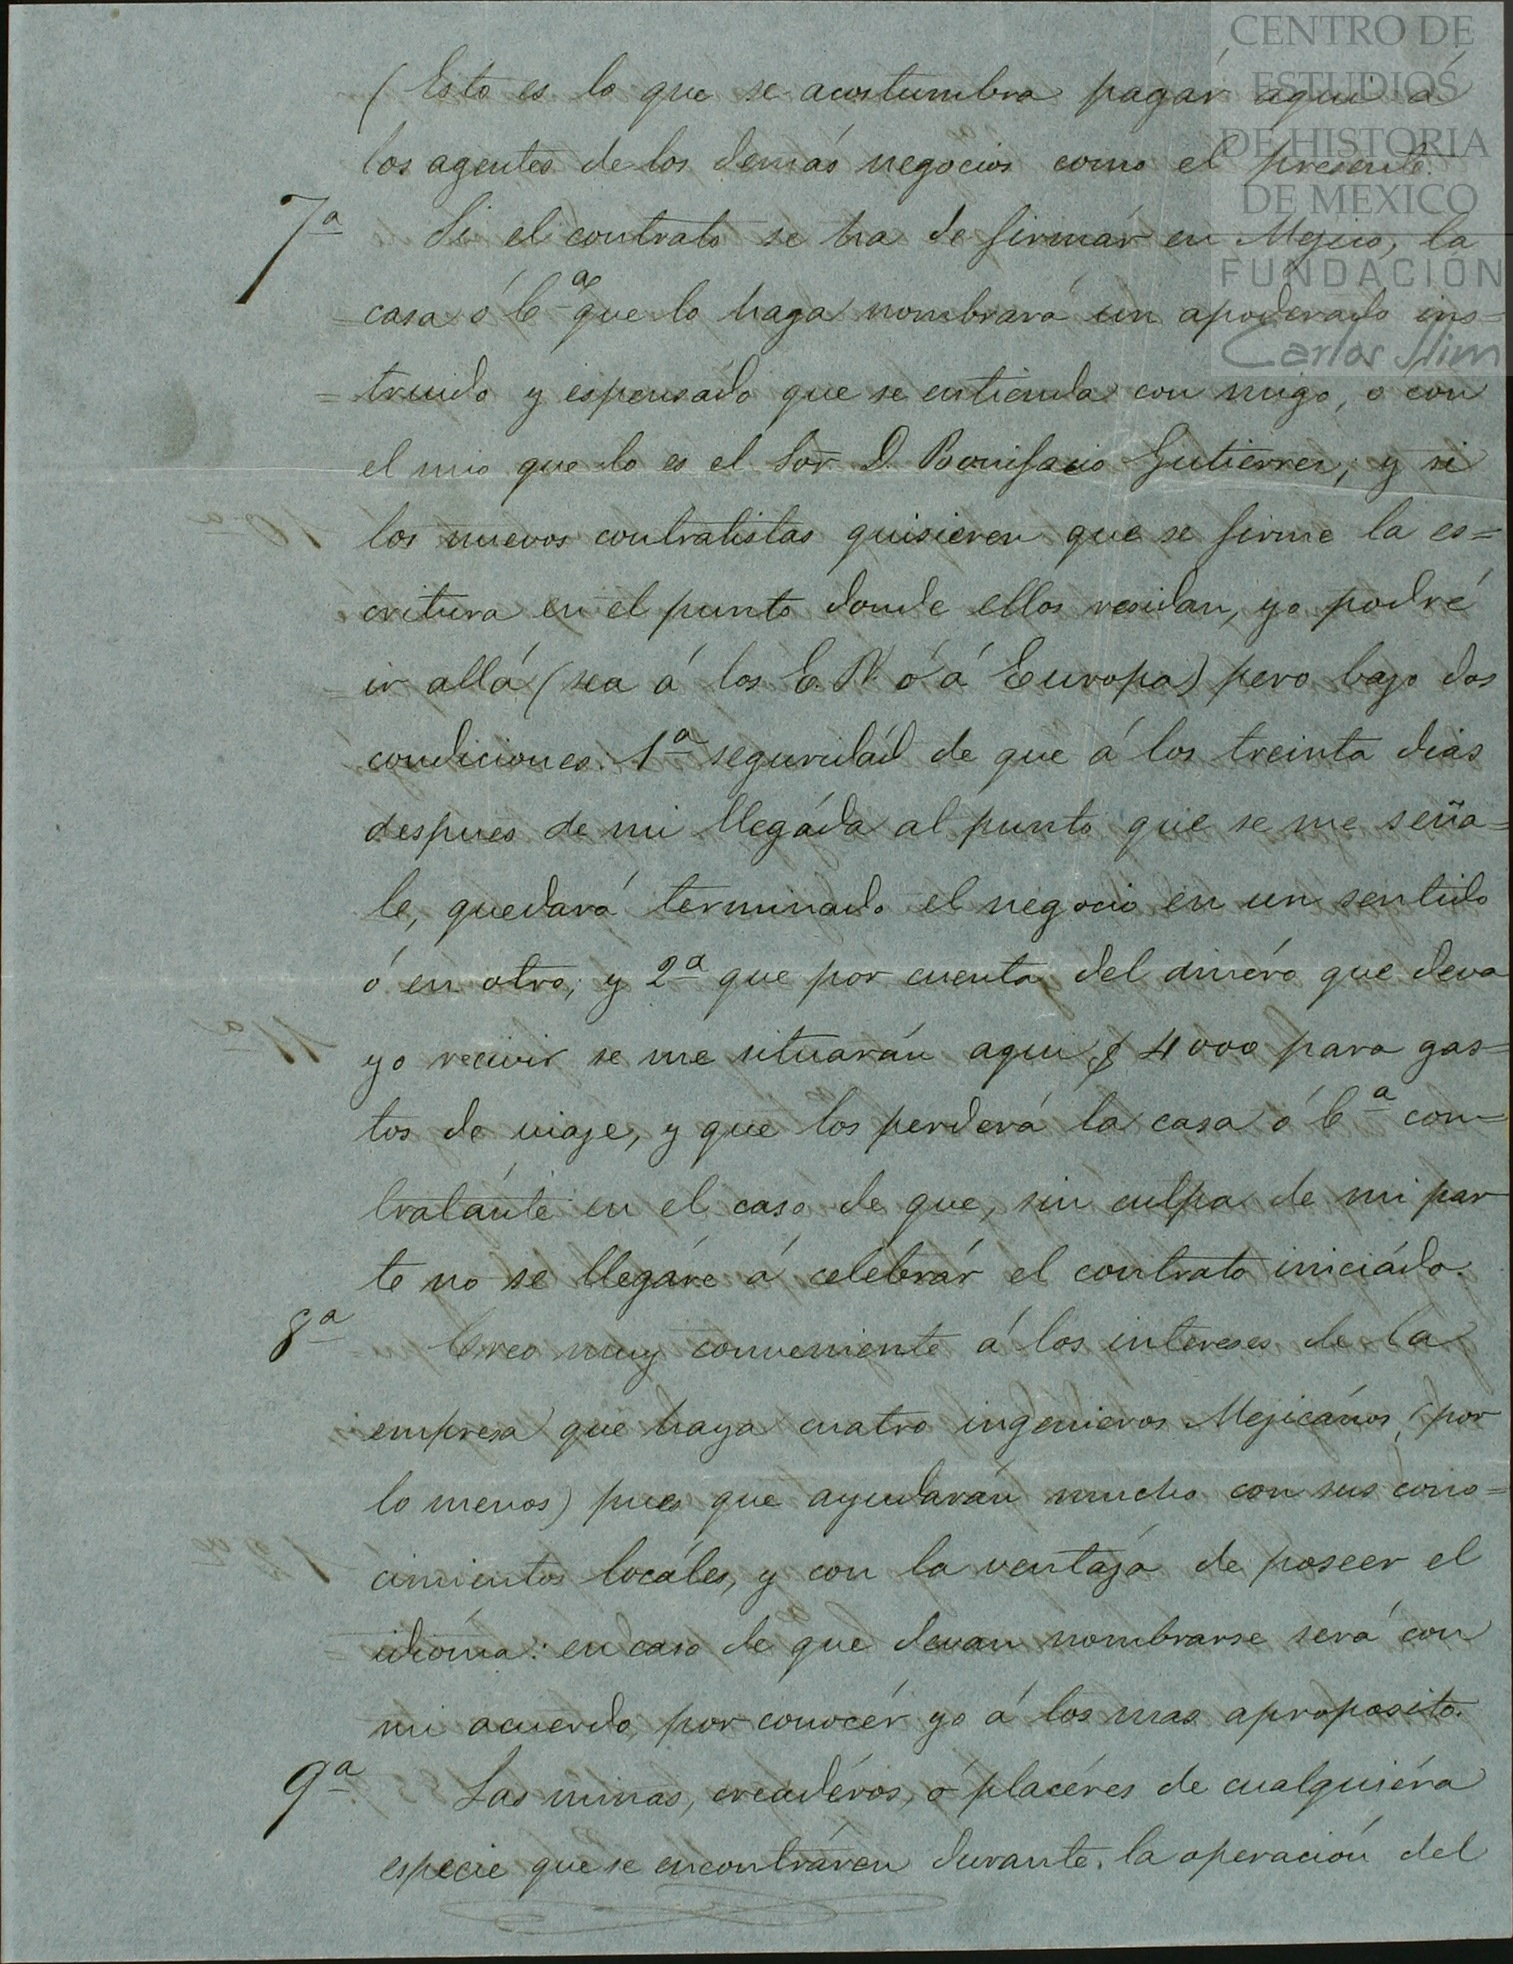 CENTRO DE
ESTUDIOS
DE HISTORIA
DE MEXICO
FUNDACIÓN
Carlos Slim
(Esto es lo que se acostumbra pagár aqui á
los agentes de los demás negocios como el presente.
7ª Si el contrato se ha de firmár en Mejico, la
casa ó Cª que lo haga nombrará un apoderado ins=
=truido y espensádo que se entienda con migo, o con
el mio que lo es el Sor D. Bonifacio Gutierrez; y si
los nuevos contratistas quisieren que se firme la es=
critura en el punto donde ellos residan, yo podré
ir allá (sea á los E. U. ó á Europa) pero bajo dos
condiciones: 1ª seguridád de que á los treinta dias
despues de mi llegáda al punto que se me seña=
le, quedará terminado el negocio en un sentido
ó en otro; y 2ª que por cuenta del dinéro que deva
yo recivir se me situarán aqui $ 4000 para gas=
tos de viaje, y que los perderá la casa ó Cª con=
tratánte en el caso de que, sin culpa de mi par
te no se llegáre á celebrár el contrato iniciádo.
8ª Creo muy conveniente á los intereses de la
empresa que haya cuatro ingenieros Mejicános, (por
lo menos) pues que ayudarán mucho con sus cono=
cimientos locáles, y con la ventaja de poseer el
idióma: en caso de que devan nombrarse será con
mi acuerdo, por conocér yo á los mas aproposito.
9ª Las minas, creadéros, ó placéres de cualquiéra
especie que se encontráren durante la operación del